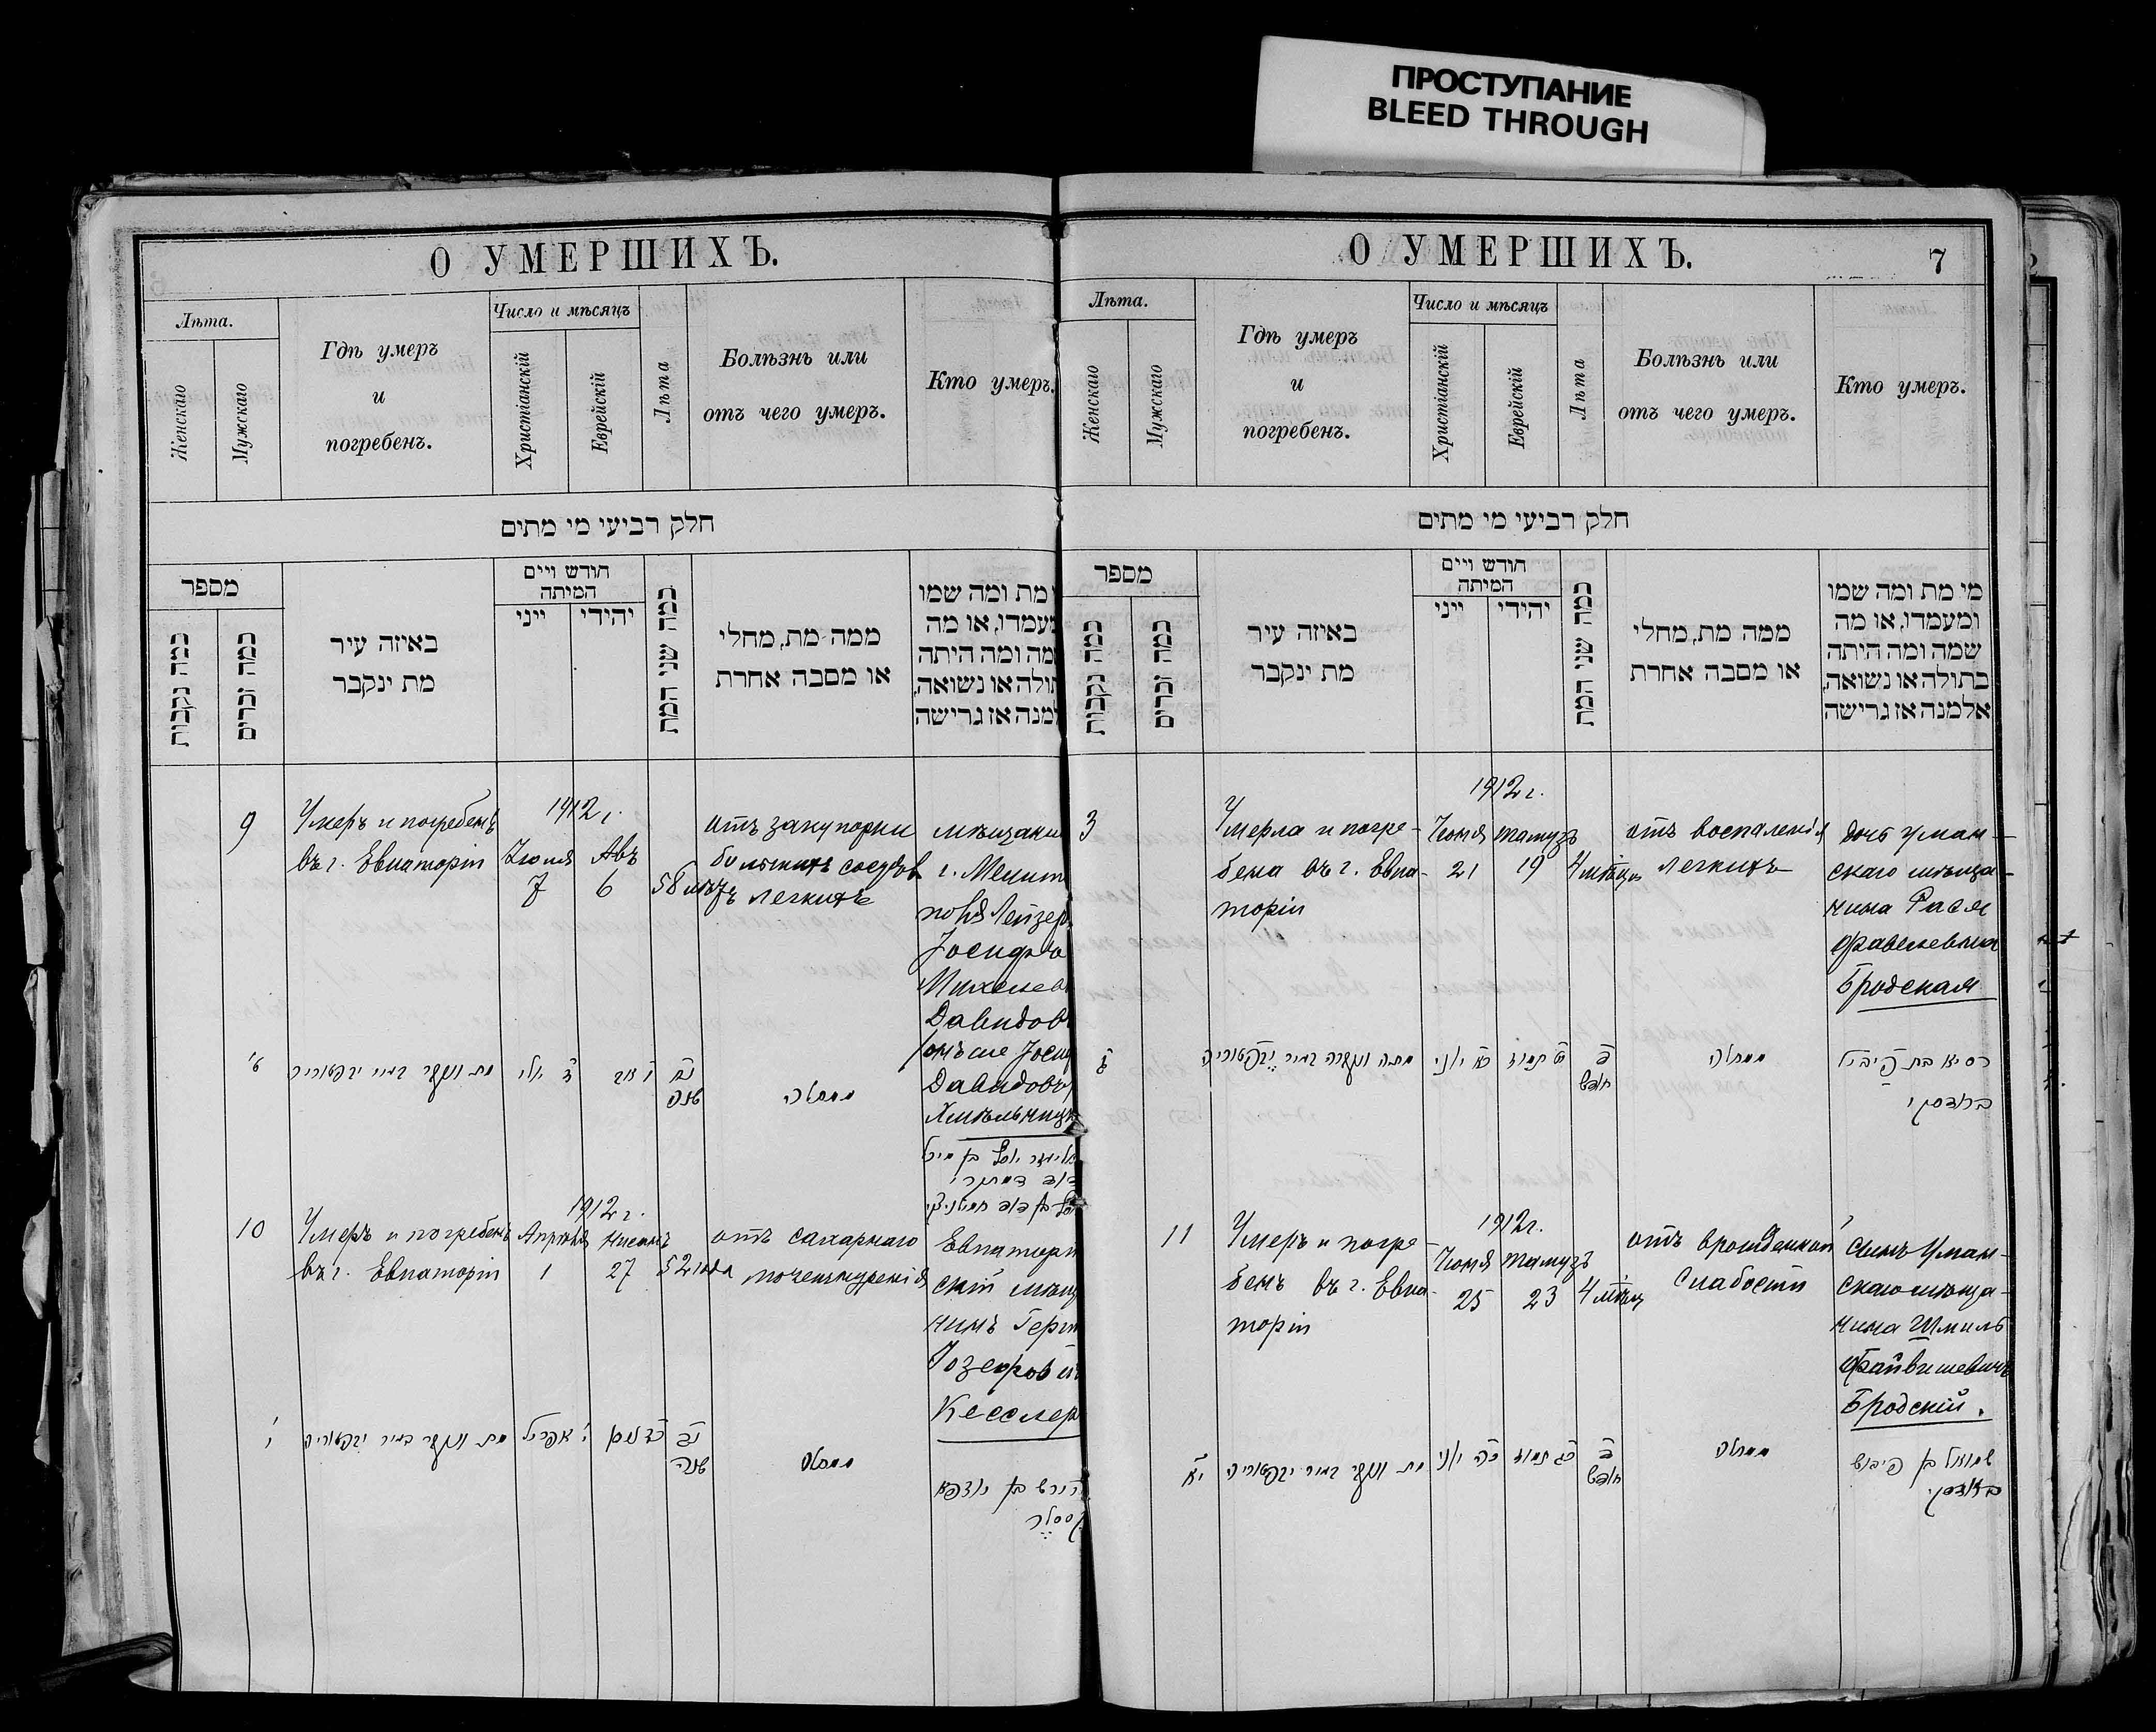 ПРОСТУПАНИЕ
BLEED THROUGH
О УМЕРШИХЪ.
Лѣта.
Женскаго
Мужскаго
Гдѣ умеръ
и
погребенъ.
Число и мѣсяцъ
Христіанскій
Еврейскій
Лѣта
Болѣзнь или
отъ чего умеръ.
Кто умеръ.
חלק רביעי מי מתים
מספר
כמה נקבות
כמה זכרים
באיזה עיר
מת ינקבר
חודש ויים
המיתה
ייני
יהידי
כמה שני המת
ממה מת, מחלי
או מסבה אחרת
מת ומה שמו
מעמדו, או מה
מה ומה היתה
תולה או נשואה,
למנה אז גרישה
9
Умеръ и погребенъ
въ г. Евпаторіи
1912 г.
Іюля
7
Авъ
6
58 лѣтъ
отъ закупорки
сосудов
легкихъ
мѣщанин
г. Мелит
Лейзер
Іосифъ
Михелев
Давидов
Давидовъ
מת ונקבר בעיר
שנה
ממחלה
10
Умеръ и погребенъ
въ г. Евпаторіи
1912 г.
Апрѣля
1
Нисанъ
27
52 года
отъ сахарнаго
мочеизнуренія
Евпатор
скій мѣщ
нинъ Герш
Кесслер
י
מת ונקבר בעיר
אפריל
ניסן
נב
שנה
ממחלה
О УМЕРШИХЪ.
7
Лѣта.
Женскаго
Мужскаго
Гдѣ умеръ
и
погребенъ.
Число и мѣсяцъ
Христіанскій
Еврейскій
Лѣта
Болѣзнь или
отъ чего умеръ.
Кто умеръ.
חלק רביעי מי מתים
מספר
כמה נקבות
כמה זכרים
באיזה עיר
מת ינקבר
חודש ויים
המיתה
ייני
יהידי
כמה שני המת
ממה מת, מחלי
או מסבה אחרת
מי מת ומה שמו
ומעמדו, או מה
שמה ומה היתה
בתולה או נשואה,
אלמנה אז גרישה
3
Умерла и погре-
бена въ г. Евпа-
торіи
1912 г.
Іюня
21
Тамузъ
19
4 мѣсяц
отъ воспаленія
легкихъ
дочь Уман-
скаго мѣща-
нина Рася
Бродская
ג
מתה ונקברה בעיר
כא יוני
יט תמוז
ד
חדש
ממחלה
רסיא בת פייביל
ברודסקי
11
Умеръ и погре-
бенъ въ г. Евпа-
торіи
1912 г.
Іюня
25
Тамузъ
23
4 мѣсяц
отъ врожденной
слабости
сынъ Уман-
скаго мѣща-
нина Шмиль
Файвишевичъ
Бродскій.
יא
מת ונקבר בעיר
כה יוני
כג תמוז
ד
חדש
ממחלה
שמואל בן פייבוש
ברודסקי